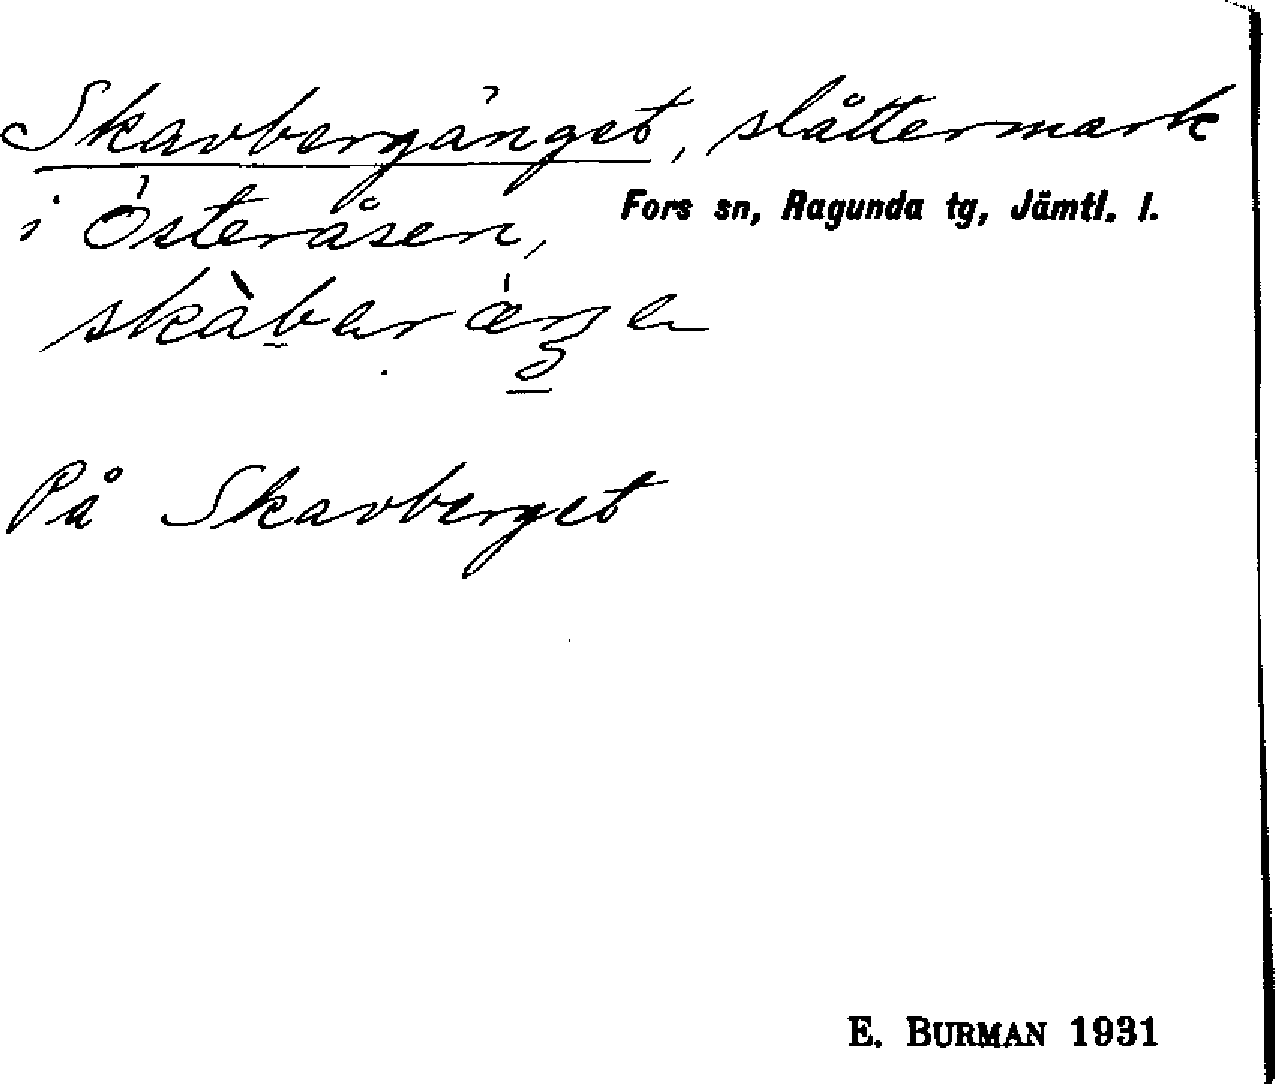 Skavbergänget, slåttermark
i Österåsen, Fors sn, Ragunda tg, Jämtl. l.
På Skavberget
E. BURMAN 1931